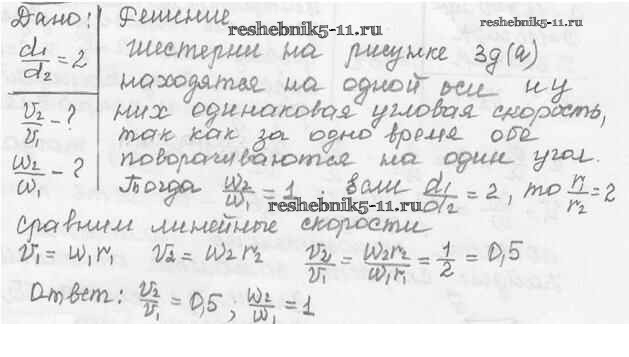 Дано: Решение
reshebnik5-11.ru
reshebnik5-11.ru
d₁/d₂ = 2
Шестерни на рисунке 3g(a)
находятся на одной оси и у
v₂/v₁ - ?
них одинаковая угловая скорость,
так как за одно время обе
ω₂/ω₁ - ?
поворачиваются на один угол.
Тогда ω₂/ω₁ = 1. Если d₁/d₂ = 2, то r₁/r₂ = 2
reshebnik5-11.ru
Сравним линейные скорости
v₁ = ω₁r₁ v₂ = ω₂r₂ v₂/v₁ = ω₂r₂/ω₁r₁ = 1/2 = 0,5
Ответ: v₂/v₁ = 0,5, ω₂/ω₁ = 1